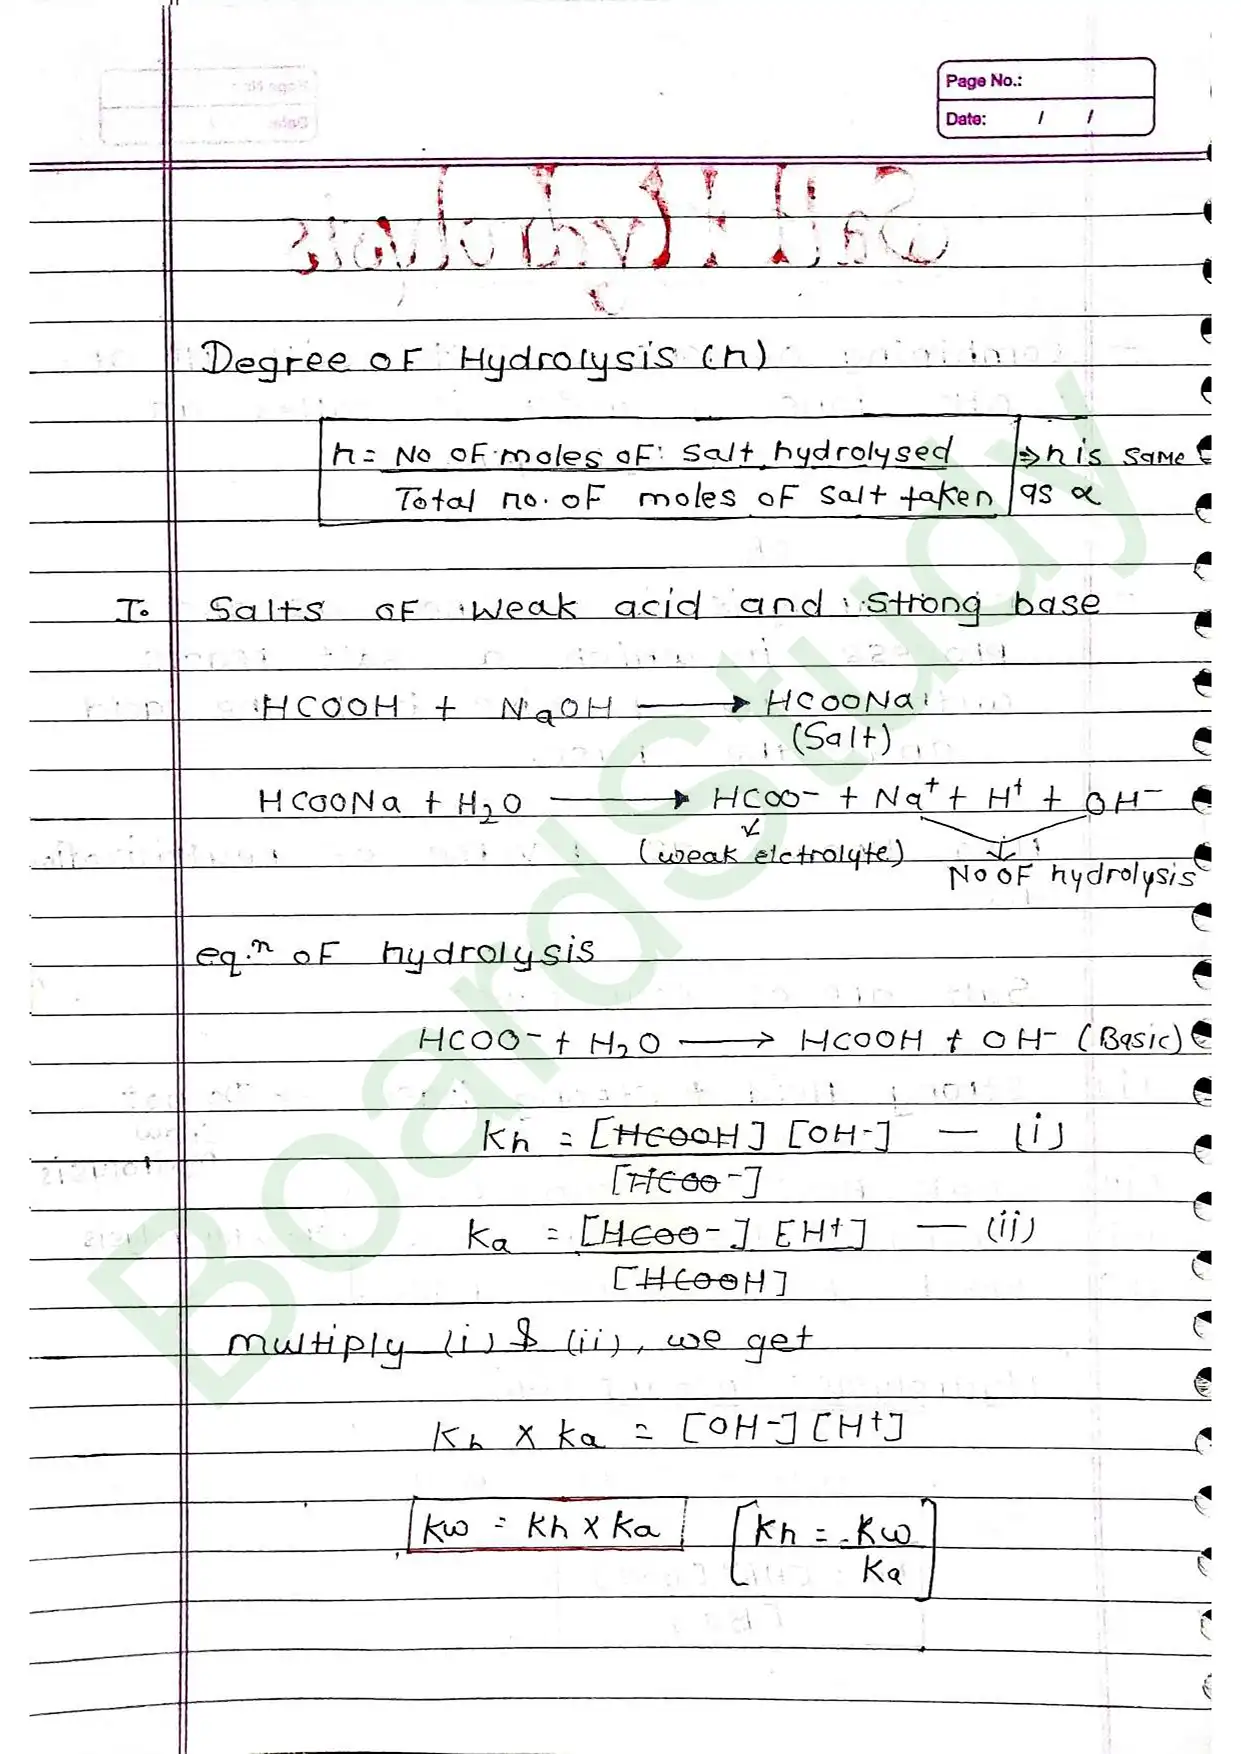 Page No.:
Date: / /
Salt Hydrolysis
Degree of Hydrolysis (h)
h = No of moles of salt hydrolysed / Total no. of moles of salt taken ⇒ h is same as α
I. Salts of weak acid and strong base
HCOOH + NaOH ⟶ HCOONa
(Salt)
HCOONa + H2O ⟶ HCOO⁻ + Na⁺ + H⁺ + OH⁻
(weak elctrolyte)
No of hydrolysis
eq.ⁿ of hydrolysis
HCOO⁻ + H2O ⟶ HCOOH + OH⁻ (Basic)
Kh = [HCOOH] [OH⁻] / [HCOO⁻] — (i)
Ka = [HCOO⁻] [H⁺] / [HCOOH] — (ii)
multiply (i) & (ii), we get
Kh × Ka = [OH⁻] [H⁺]
Kw = Kh × Ka [Kh = Kw / Ka]
BoardStudy